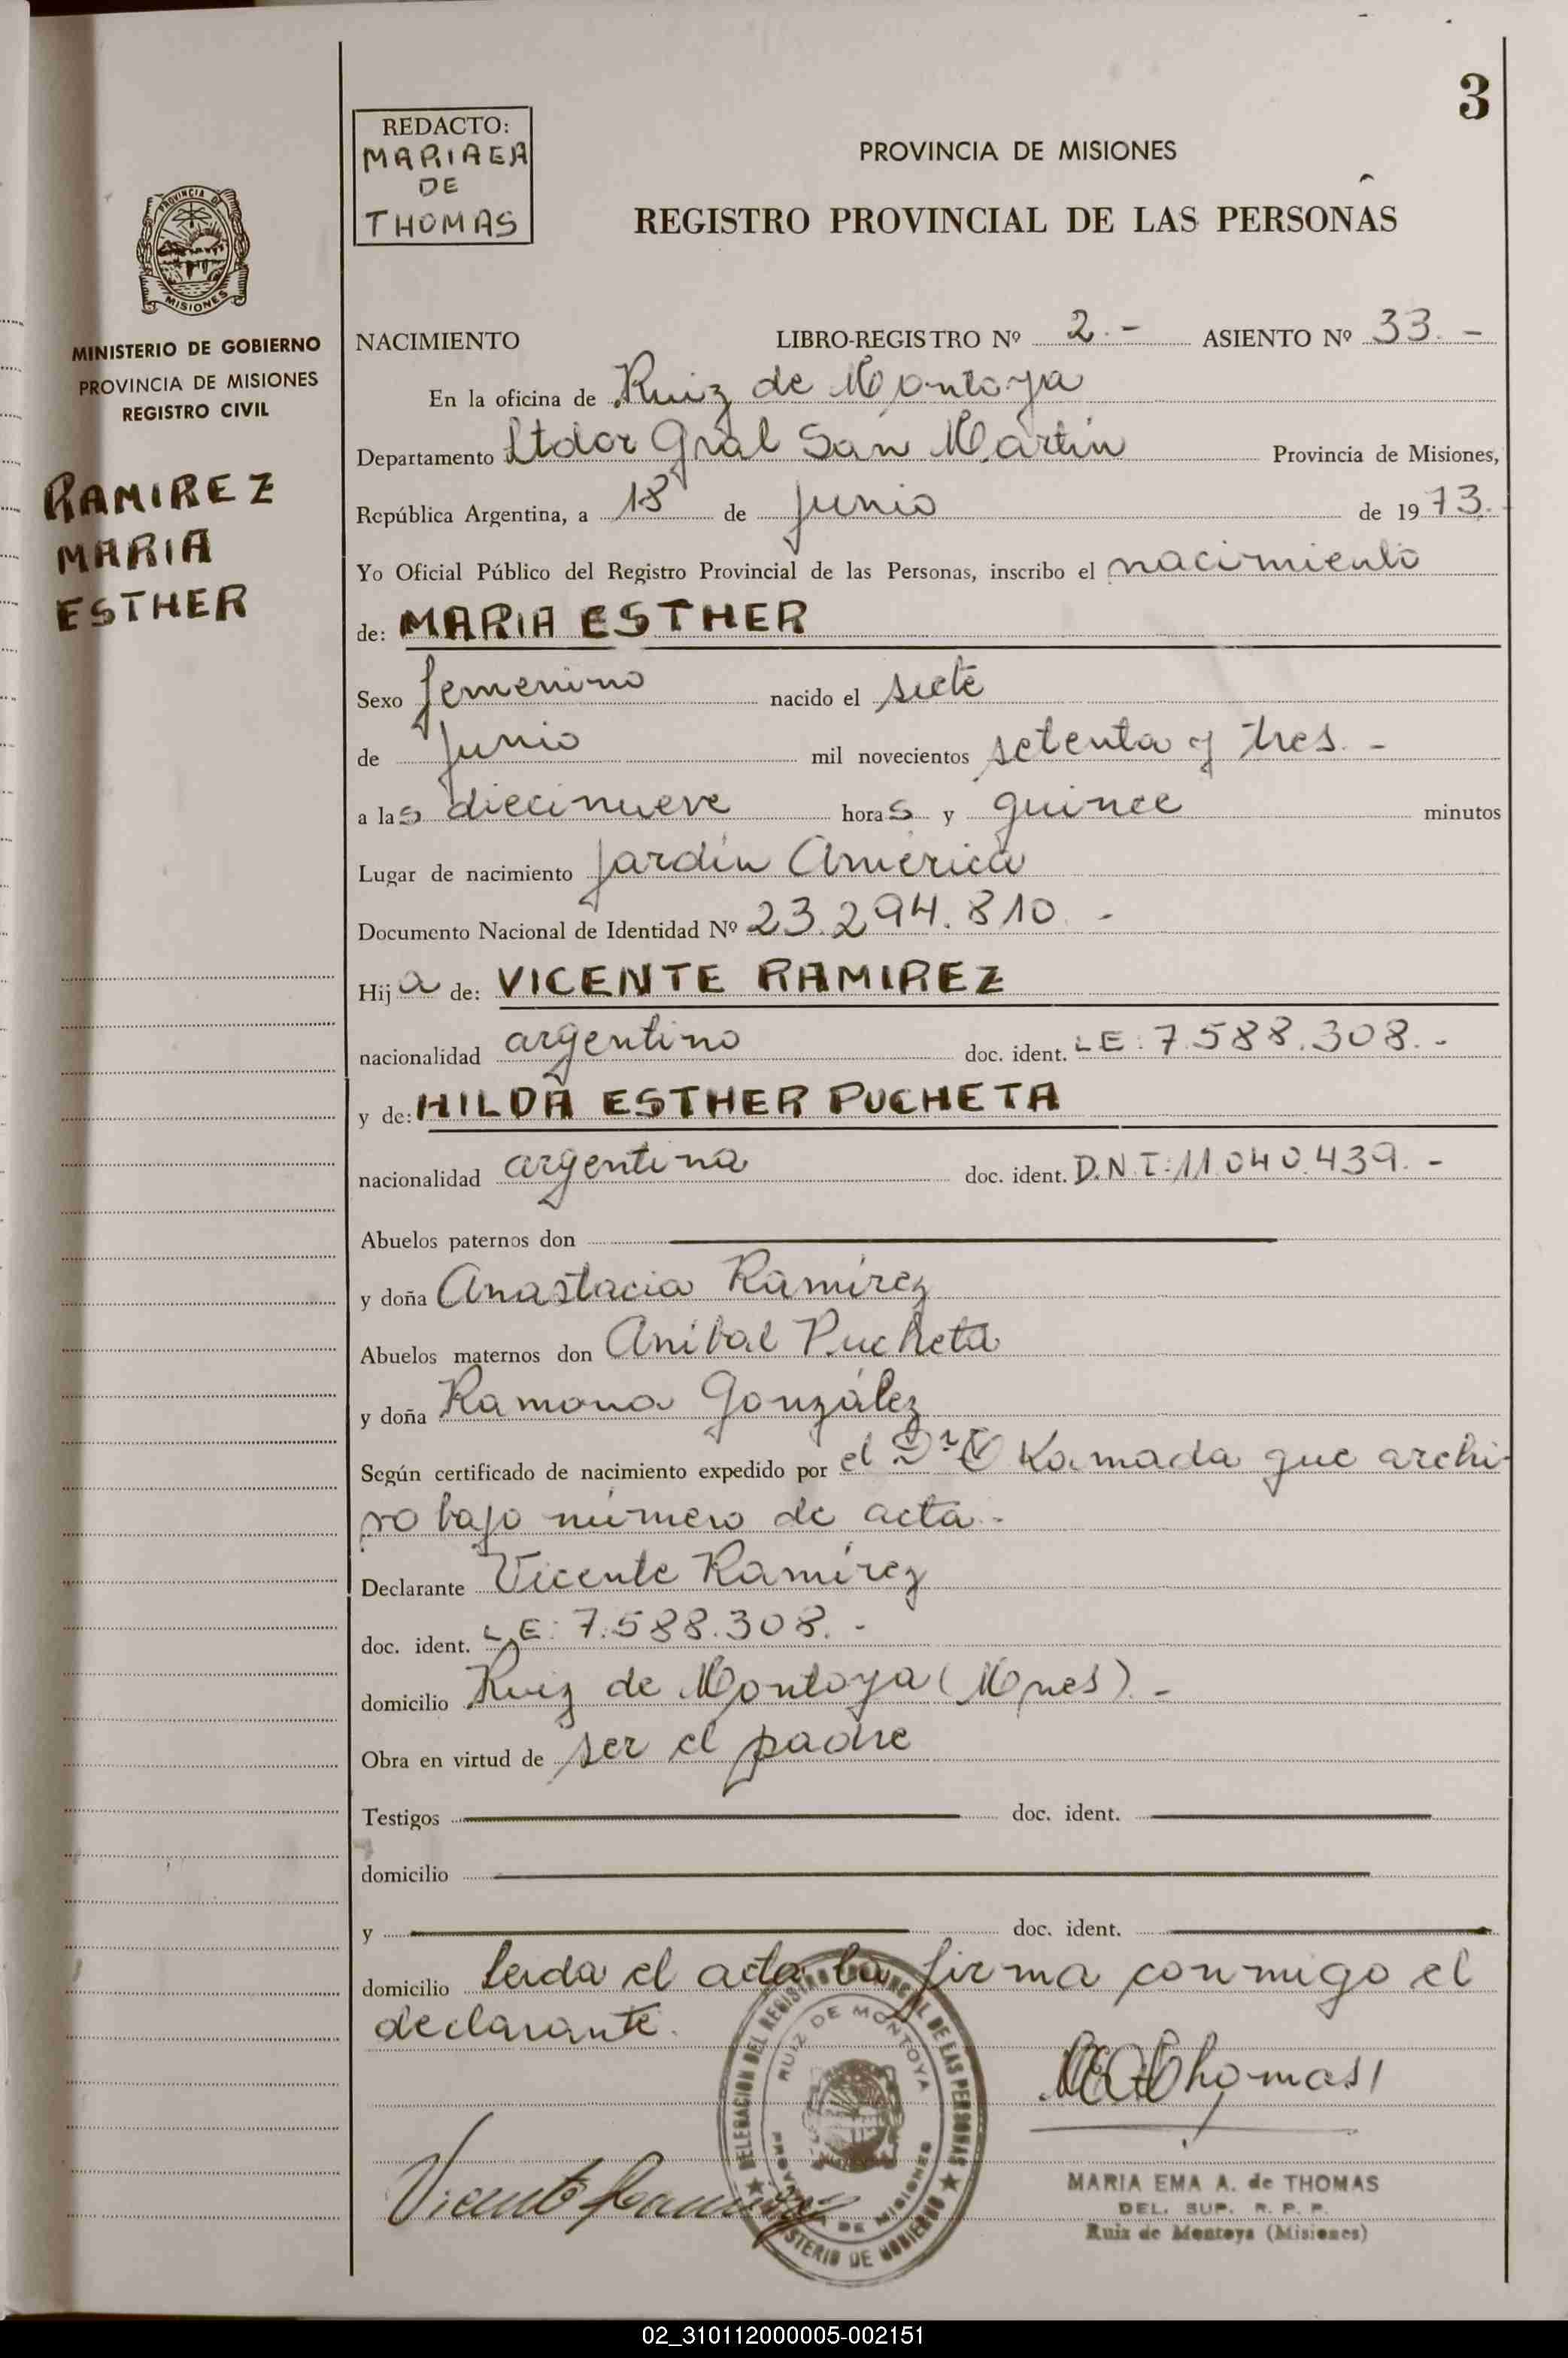 3
REDACTO:
MARIA E A
DE
THOMAS
PROVINCIA DE MISIONES
REGISTRO PROVINCIAL DE LAS PERSONAS
PROVINCIA DE
MISIONES
MINISTERIO DE GOBIERNO
PROVINCIA DE MISIONES
REGISTRO CIVIL
RAMIREZ
MARIA
ESTHER
NACIMIENTO LIBRO-REGISTRO Nº 2.- ASIENTO Nº 33.-
En la oficina de Ruiz de Montoya
Departamento Ltdor Gral San Martín Provincia de Misiones,
República Argentina, a 18 de junio de 1973.
Yo Oficial Público del Registro Provincial de las Personas, inscribo el nacimiento
de: MARIA ESTHER
Sexo femenino nacido el siete
de junio mil novecientos setenta y tres.-
a las diecinueve horas y quince minutos
Lugar de nacimiento Jardín América
Documento Nacional de Identidad Nº 23.294.810.-
Hija de: VICENTE RAMIREZ
nacionalidad argentino doc. ident. LE: 7.588.308.-
y de: HILDA ESTHER PUCHETA
nacionalidad argentina doc. ident. D.N.I: 11.040.439.-
Abuelos paternos don
y doña Anastacia Ramírez
Abuelos maternos don Aníbal Pucheta
y doña Ramona González
Según certificado de nacimiento expedido por el Dr Kamada que archi-
vo bajo número de acta.-
Declarante Vicente Ramírez
doc. ident. LE: 7.588.308.-
domicilio Ruiz de Montoya (Mnes).-
Obra en virtud de ser el padre
Testigos doc. ident.
domicilio
y doc. ident.
domicilio Leida el acta la firma conmigo el
declarante.
DELEGACION DEL REGISTRO PROVINCIAL DE LAS PERSONAS
RUIZ DE MONTOYA
PROVINCIA DE MISIONES
MINISTERIO DE GOBIERNO
Thomas
Vicente Ramirez
MARIA EMA A. de THOMAS
DEL. SUP. R. P. P.
Ruiz de Montoya (Misiones)
02_310112000005-002151